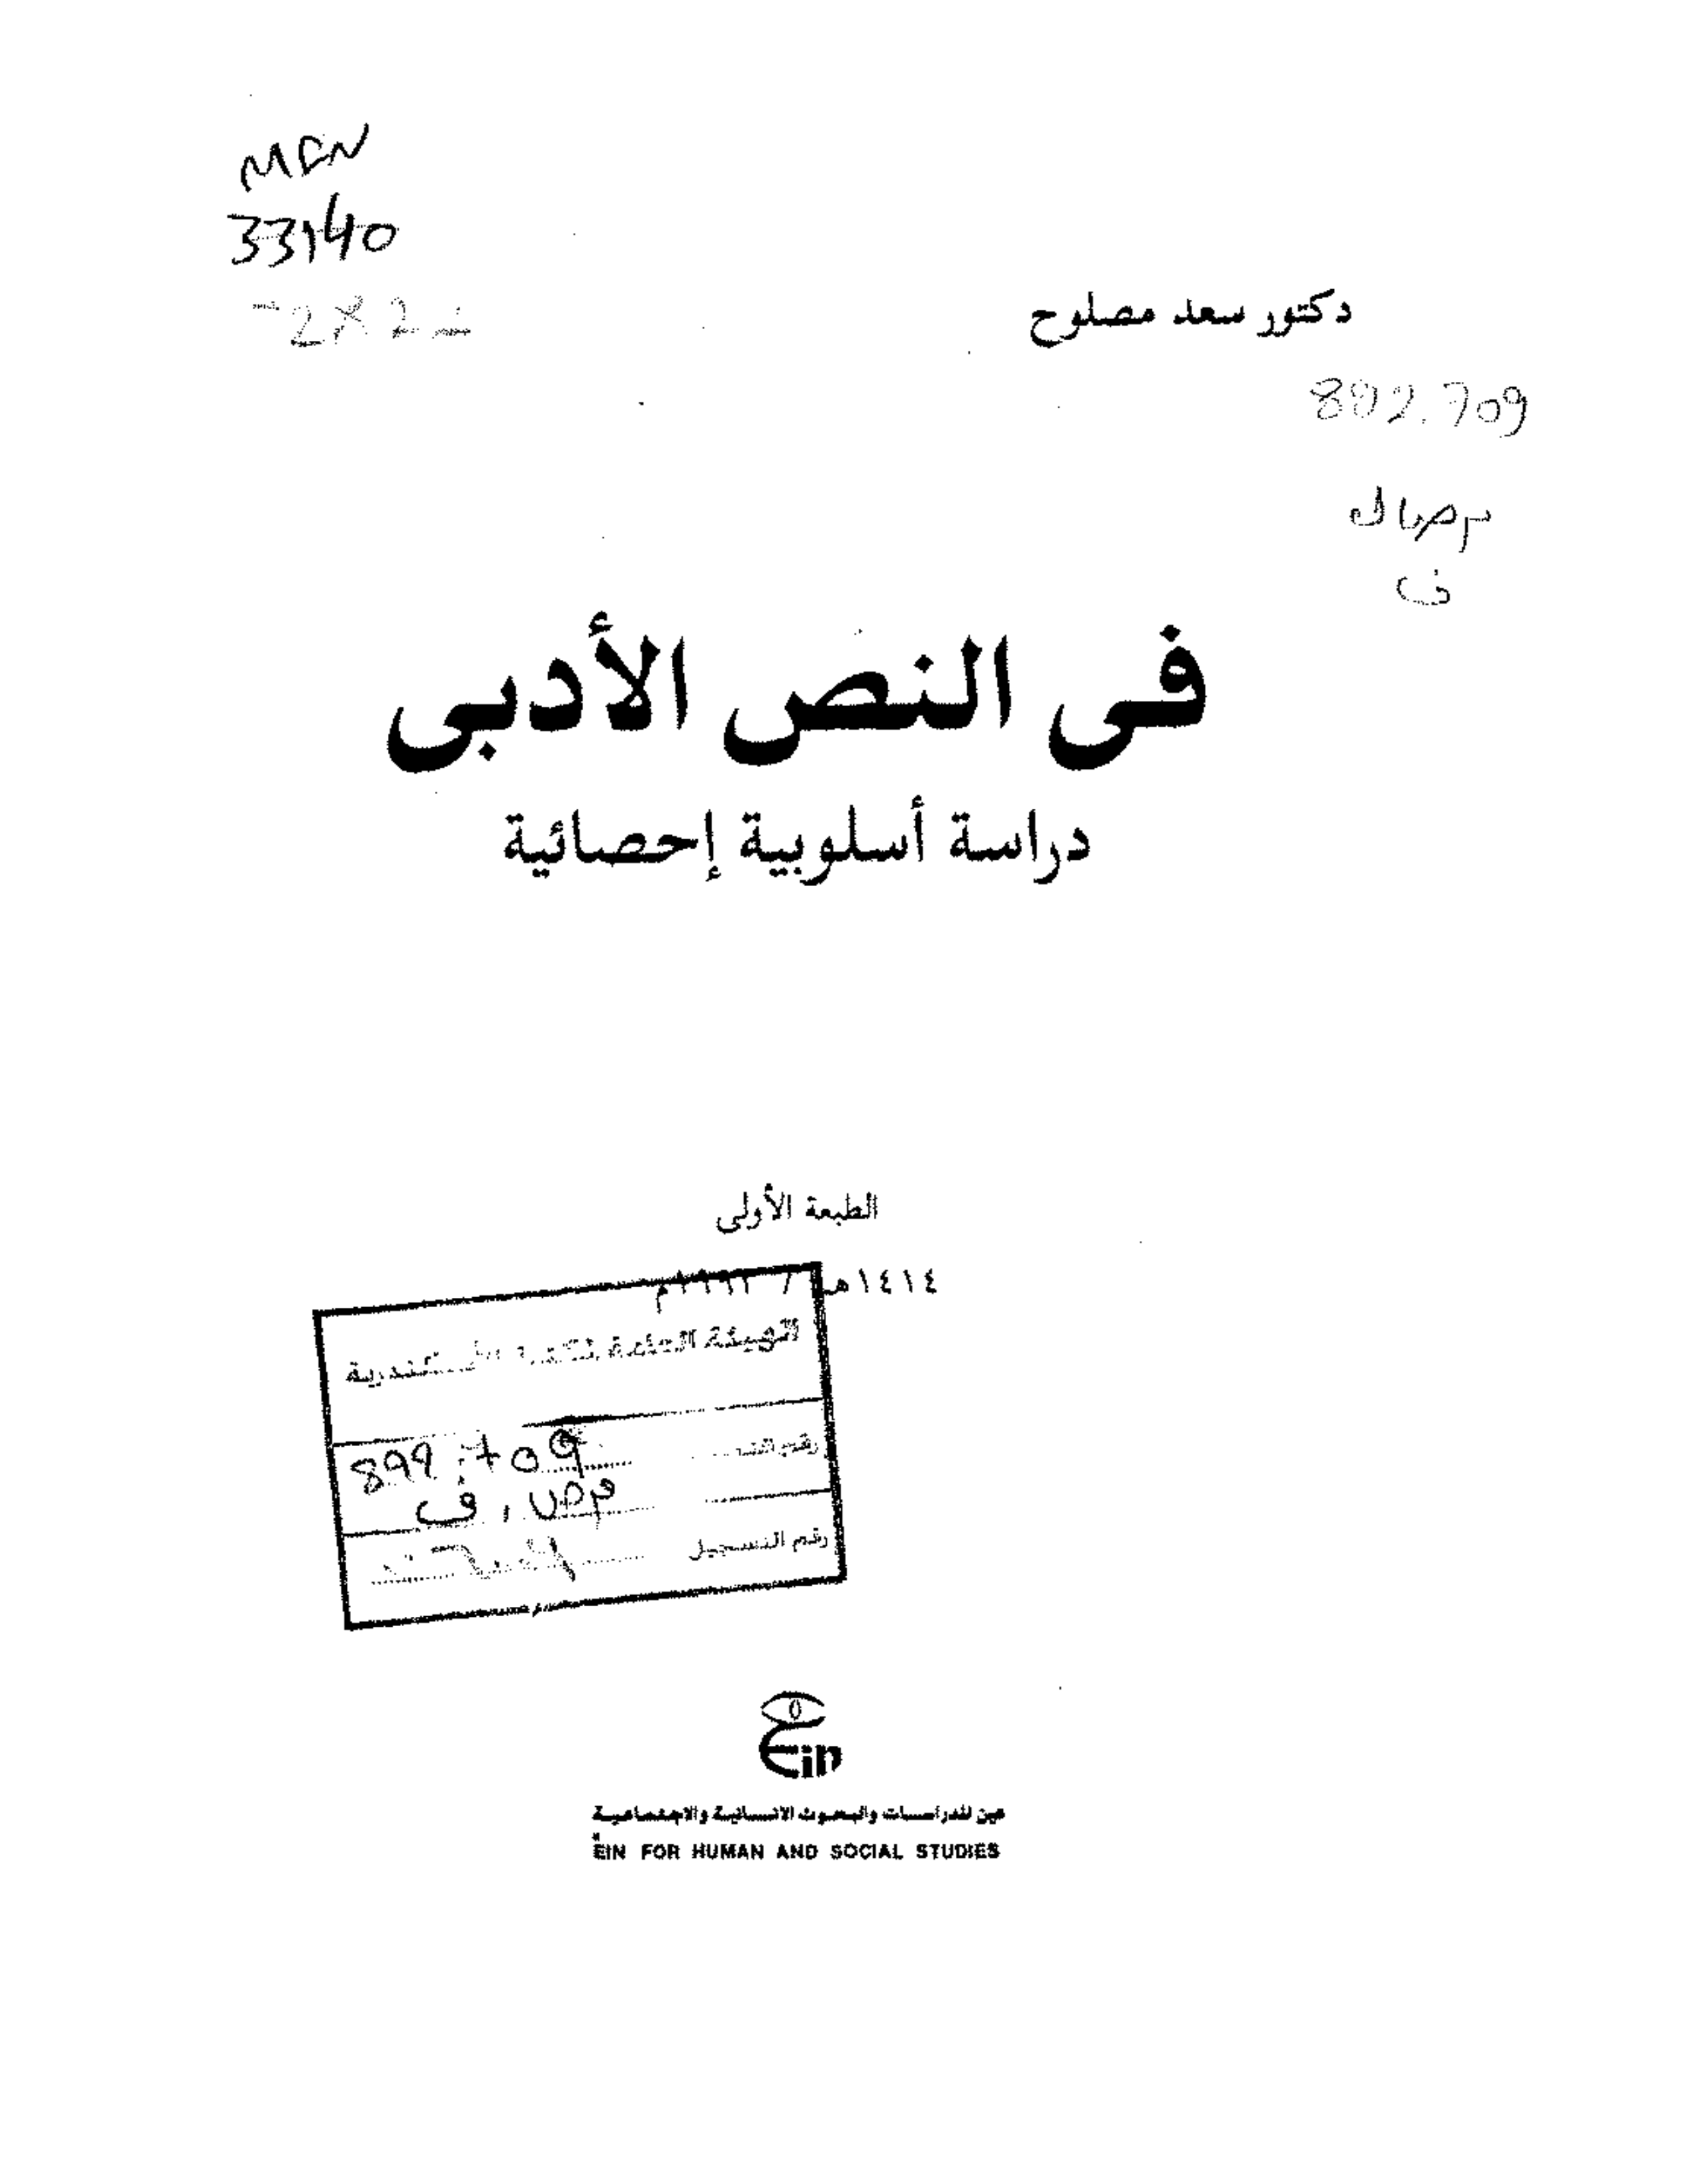 MEN
33140
دكتور سعد مصلوح
892.709
ف
فى النص الأدبى
دراسة أسلوبية إحصائية
الطبعة الأولى
١٤١٤هـ /
الهيئة العامة لكتبة الأسكندرية
رقم
ف
رقم التسجيل
Ein
عين للدراسات والبحوث الانسانية والاجتماعية
EIN FOR HUMAN AND SOCIAL STUDIES